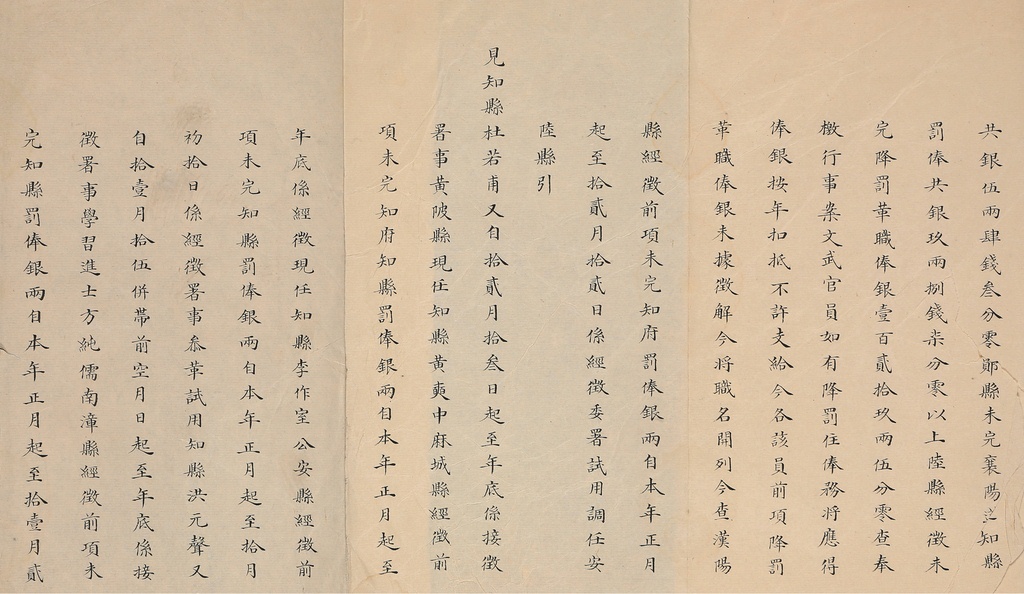 共銀伍兩肆錢叁分零鄖縣未完襄陽之知縣
罰俸共銀玖兩捌錢柒分零以上陸縣經徵未
完降罰革職俸銀壹百貳拾玖兩伍分零查奉
檄行事案文武官員如有降罰住俸務將應得
俸銀按年扣抵不許支給今各該員前項降罰
革職俸銀未據徵解今將職名開列今查漢陽
縣經徵前項未完知府罰俸銀兩自本年正月
起至拾貳月拾貳日係經徵委署試用調任安
陸縣引
見知縣杜若甫又自拾貳月拾叁日起至年底係接徵
署事黃陂縣現任知縣黃奭中麻城縣經徵前
項未完知府知縣罰俸銀兩自本年正月起至
年底係經徵現任知縣李作室公安縣經徵前
項未完知縣罰俸銀兩自本年正月起至拾月
初拾日係經徵署事叅革試用知縣洪元聲又
自拾壹月拾伍併帶前空月日起至年底係接
徵署事學習進士方純儒南漳縣經徵前項未
完知縣罰俸銀兩自本年正月起至拾壹月貳